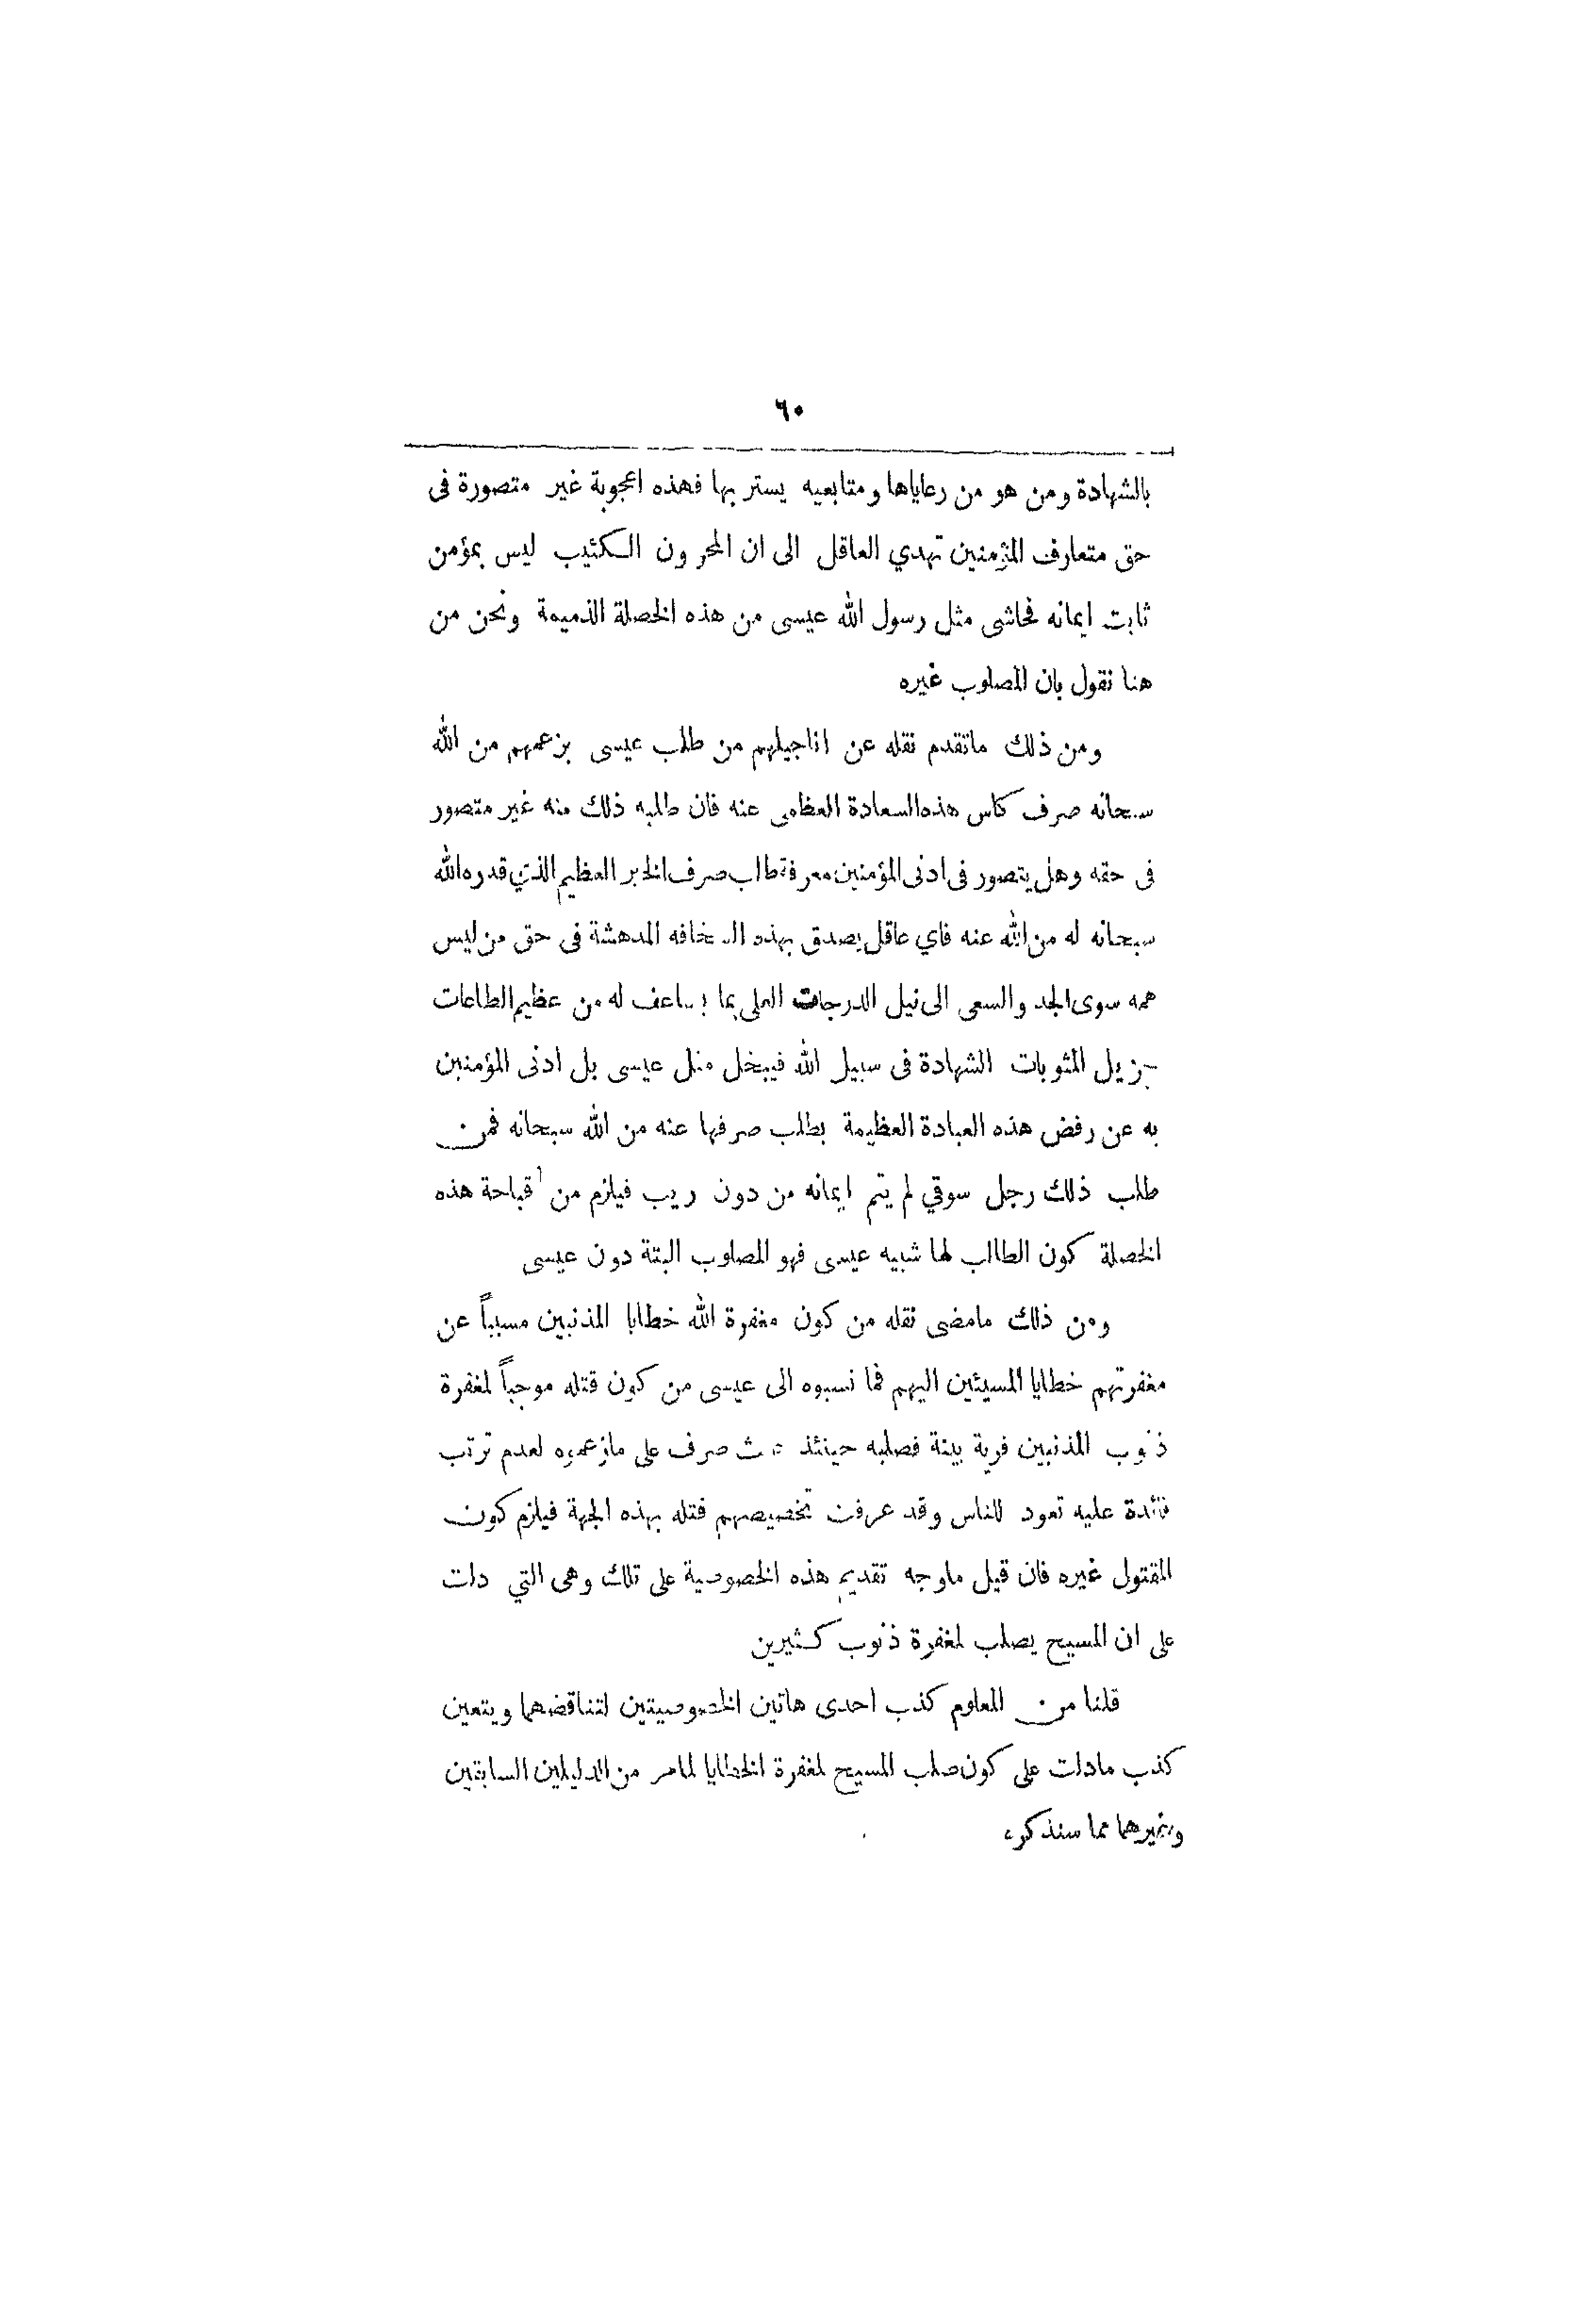 ٦٠
بالشهادة ومن هو من رعاياها ومتابعيه يستر بها فهذه اعجوبة غير متصورة فى
حق متعارف المؤمنين تهدي العاقل الى ان المحزون الكئيب ليس بمؤمن
ثابت ايمانه فحاشى مثل رسول الله عيسى من هذه الخصلة الذميمة ونحن من
هنا نقول بان المصلوب غيره
ومن ذلك ماتقدم نقله عن اناجيلهم من طلب عيسى بزعمهم من الله
سبحانه صرف كاس هذه السعادة العظمى عنه فان طلبه ذلك منه غير متصور
فى حقه وهل يتصور فى ادنى المؤمنين معرفة طلب صرف الخير العظيم الذي قدره الله
سبحانه له من الله عنه فاي عاقل يصدق بهذه السخافه المدهشة فى حق من ليس
همه سوى الجد والسعى الى نيل الدرجات العلى بما له من عظيم الطاعات
جزيل المثوبات الشهادة فى سبيل الله فيبخل مثل عيسى بل ادنى المؤمنين
به عن رفض هذه العبادة العظيمة بطلب صرفها عنه من الله سبحانه فمن
طلب ذلك رجل سوقي لم يتم ايمانه من دون ريب فيلزم من قباحة هذه
الخصلة كون الطالب لها شبيه عيسى فهو المصلوب البتة دون عيسى
ومن ذلك مامضى نقله من كون مغفرة الله خطايا المذنبين مسبباً عن
مغفرتهم خطايا المسيئين اليهم فما نسبوه الى عيسى من كون قتله موجباً لمغفرة
ذنوب المذنبين فرية بينة فصلبه حينئذ صرف على مازعموه لعدم ترتب
فائدة عليه تعود للناس وقد عرفت تخصيصهم قتله بهذه الجهة فيلزم كون
المقتول غيره فان قيل ماوجه تقديم هذه الخصوصية على تلك وهى التي دلت
على ان المسيح يصلب لمغفرة ذنوب كثيرين
قلنا من المعلوم كذب احدى هاتين الخصوصيتين لتناقضهما ويتعين
كذب مادلت على كون صلب المسيح لمغفرة الخطايا لمامر من الدليلين السابقين
وغيرهما مما سنذكره